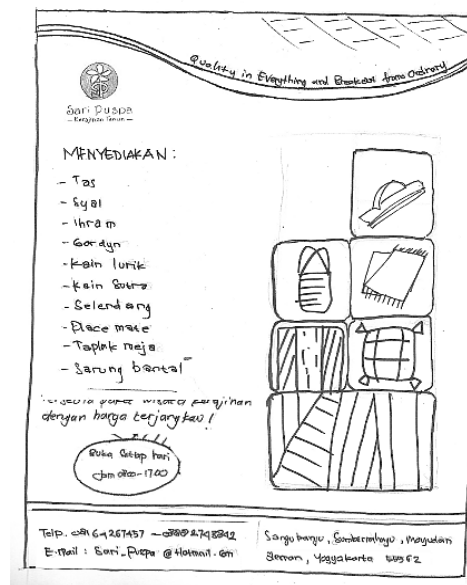 Quality in Everything and Breakout from Ordinary
Sari Puspa
Kerajinan Tenun
MENYEDIAKAN :
- Tas
- Syal
- Ihram
- Gordyn
- Kain lurik
- Kain Sutra
- Selendang
- Place mate
- Taplak meja
- Sarung bantal
paket wisata kerajinan
dengan harga terjangkau !
Buka Setiap hari
Jam 08.00-17.00
Telp.
E-mail : Sari_Puspa @ Hotmail . com
Sumberrahayu , Moyudan
Sleman , Yogyakarta 55562